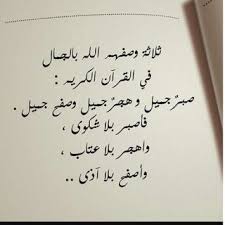 ثلاثة وصفهم الله بالجمال
في القرآن الكريم :
صبرٌ جميل و هجرٌ جميل وصفح جميل .
فاصبر بلا شكوى ،
واهجر بلا عتاب ،
واصفح بلا أذى ..